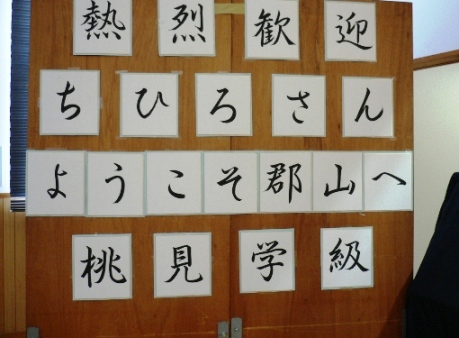 熱烈歓迎
ちひろさん
ようこそ郡山へ
桃見学級